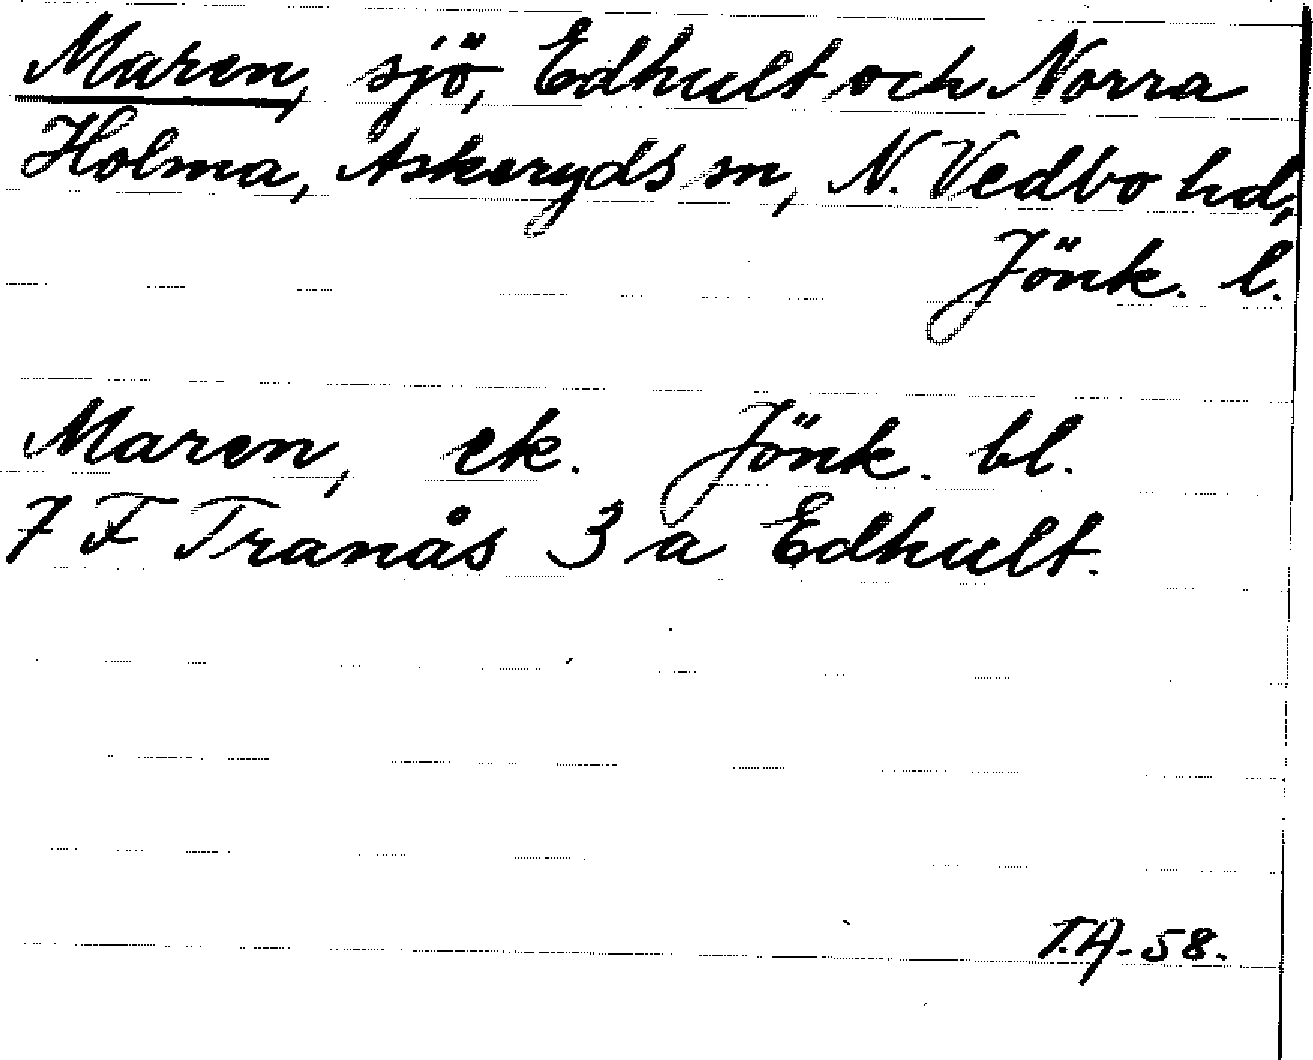 Maren, sjö, Edhult och Norra
Holma, Askeryds sn, N. Vedbo hd,
Jönk. l.
Maren, ek. Jönk. bl.
7 F Tranås 3 a Edhult.
T.A-58.